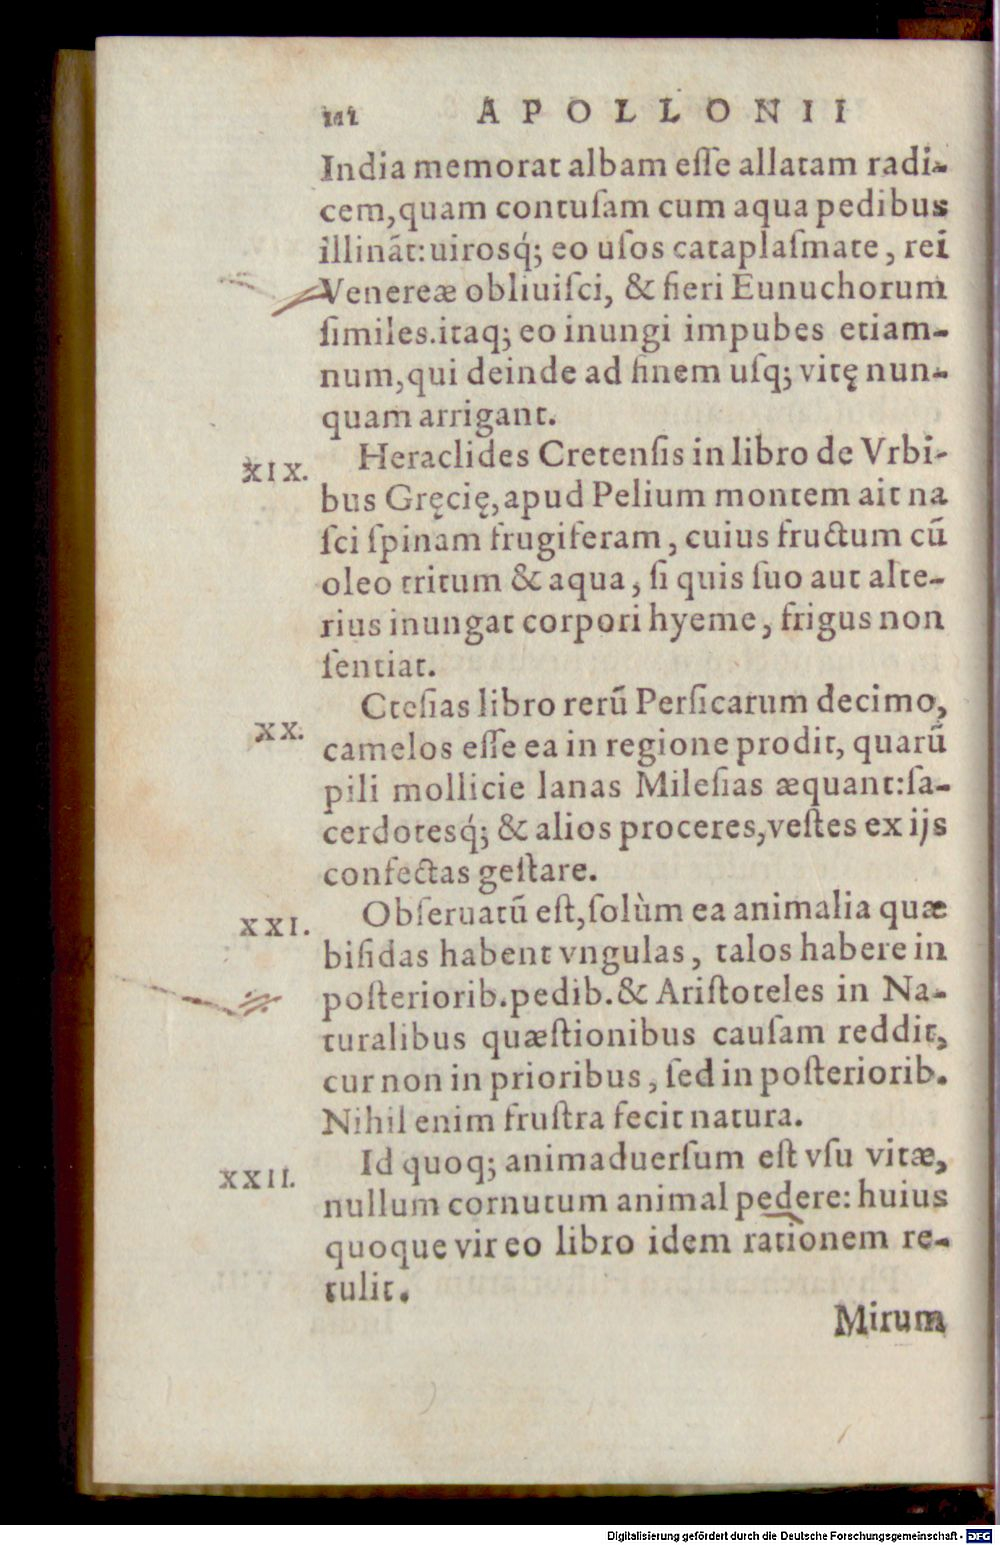 APOLLONII
India memorat albam eſſe allatam radi-
cem, quam contuſam cum aqua pedibus
illināt: uirosq́; eo uſos cataplaſmate, rei
Venereæ obliuiſci, & fieri Eunuchorum
ſimiles. itaq; eo inungi impubes etiam-
num, qui deinde ad finem uſq; vitę nun-
quam arrigant.
XIX. Heraclides Cretenſis in libro de Vrbi-
bus Gręcię, apud Pelium montem ait na
ſci ſpinam frugiferam, cuius fructum cū
oleo tritum & aqua, ſi quis ſuo aut alte-
rius inungat corpori hyeme, frigus non
ſentiat.
XX. Cteſias libro rerū Perſicarum decimo,
camelos eſſe ea in regione prodit, quarū
pili mollicie lanas Mileſias æquant: ſa-
cerdotesq́; & alios proceres, veſtes ex ijs
confectas geſtare.
XXI. Obſeruatū eſt, ſolùm ea animalia quæ
bifidas habent vngulas, talos habere in
poſteriorib. pedib. & Ariſtoteles in Na-
turalibus quæſtionibus cauſam reddit,
cur non in prioribus, ſed in poſteriorib.
Nihil enim fruſtra fecit natura.
XXII. Id quoq; animaduerſum eſt vſu vitæ,
nullum cornutum animal pedere: huius
quoque vir eo libro idem rationem re-
tulit.
Mirum
Digitalisierung gefördert durch die Deutsche Forschungsgemeinschaft - DFG